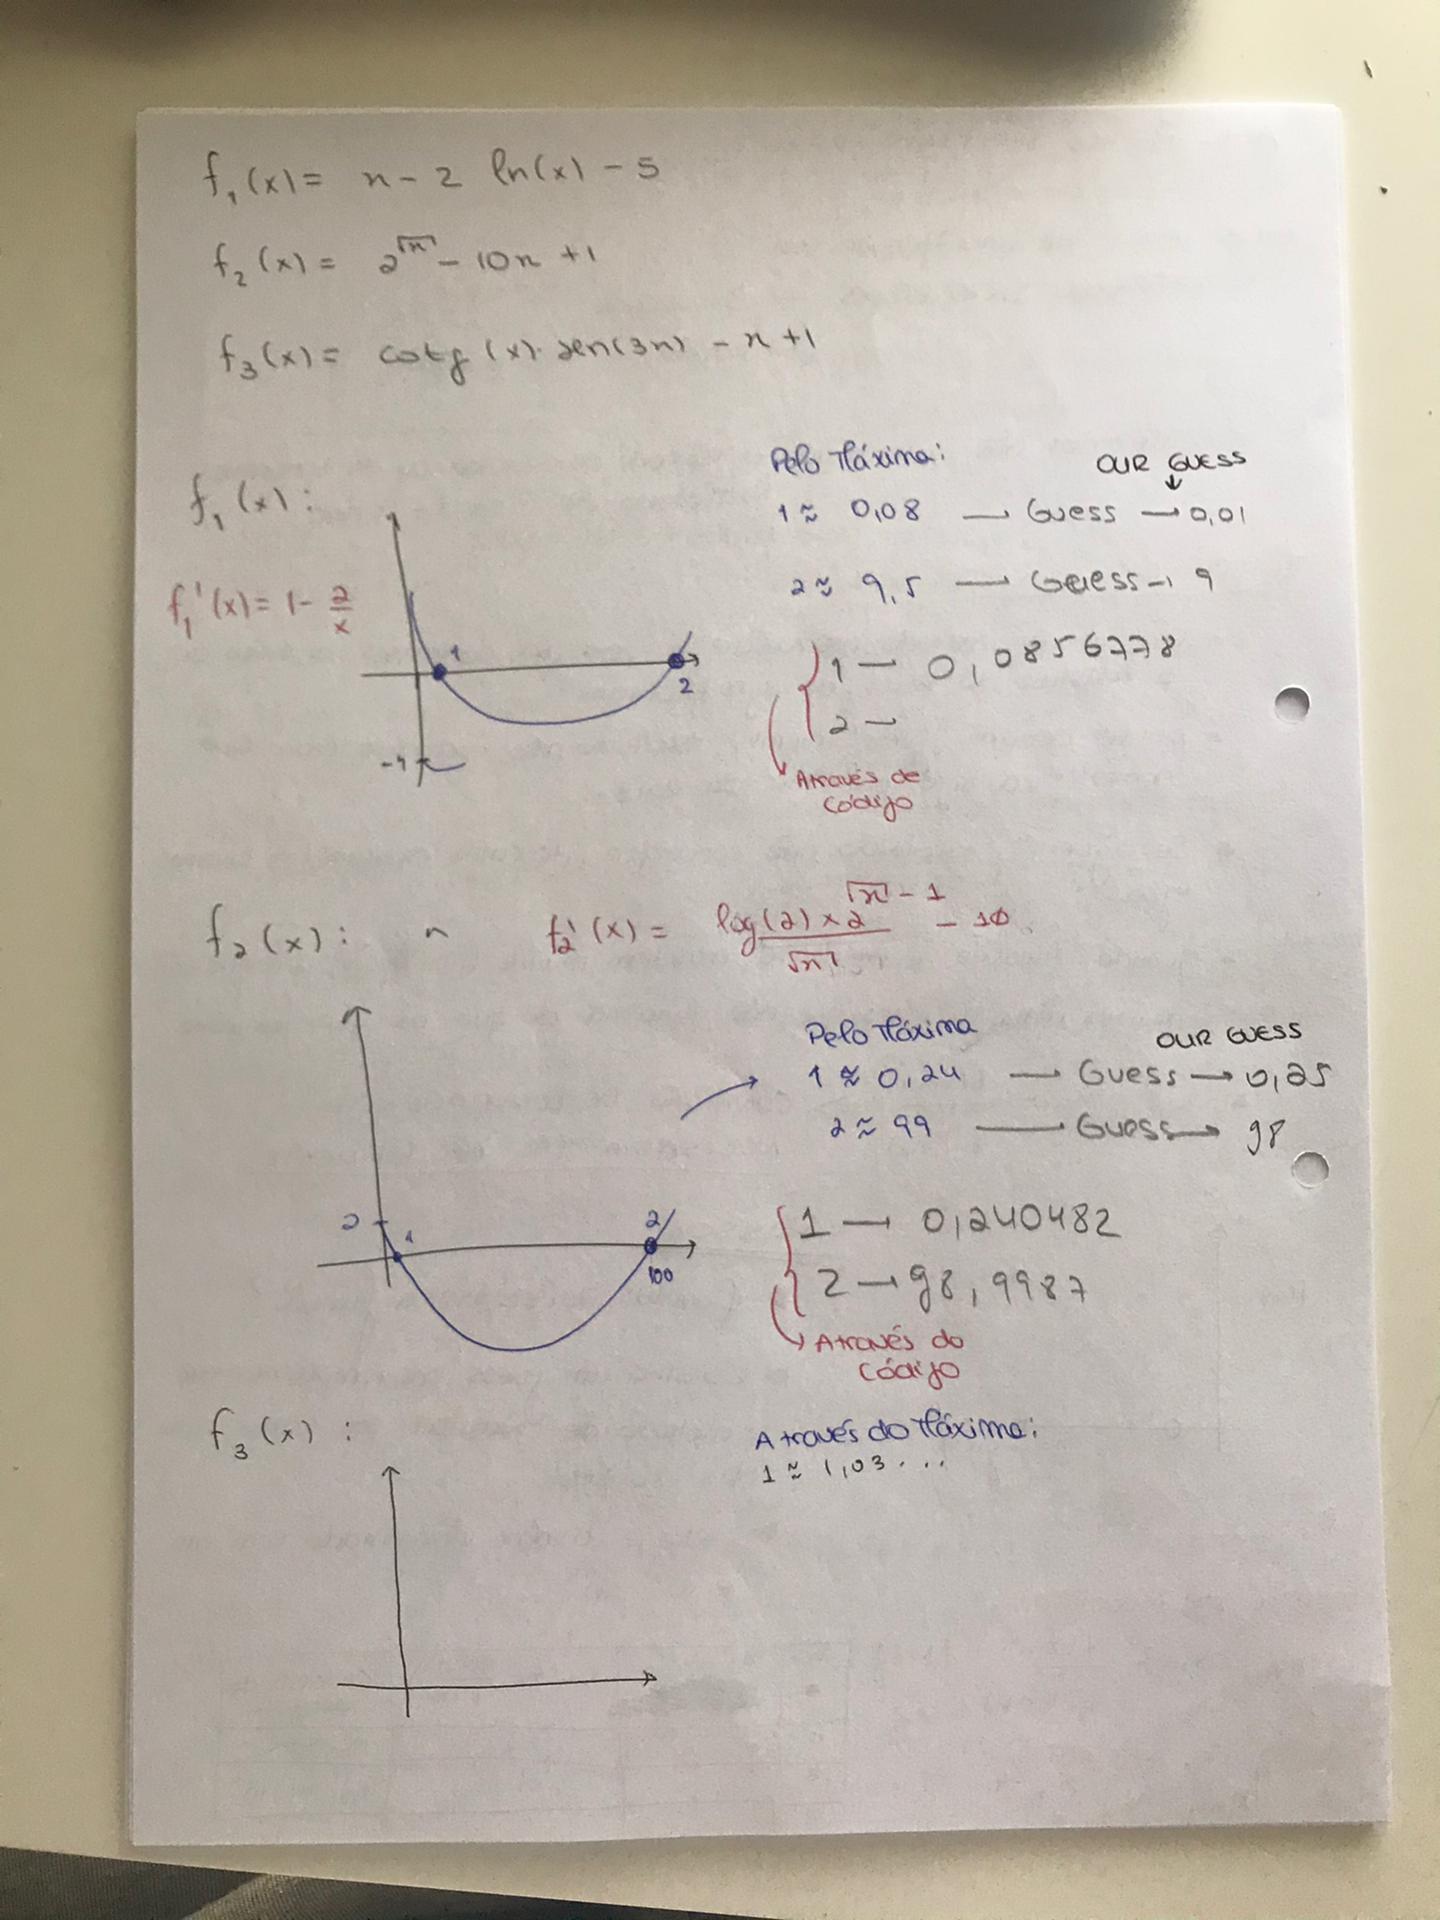 f₁(x) = x - 2 ln(x) - 5
f₂(x) = 2^√x - 10x + 1
f₃(x) = cotg(x).sen(3x) - x + 1
f₁(x):
Pelo Máxima:
OUR GUESS
1 ≈ 0,08 → Guess → 0,01
f₁'(x) = 1 - 2/x
2 ≈ 9,5 → Guess → 9
1
2
1 → 0,0856778
2 →
-4
Através de
código
f₂(x):
f₂'(x) = (log(2) × 2^(√x - 1))/√x - 10
Pelo Máxima
OUR GUESS
1 ≈ 0,24 → Guess → 0,25
2 ≈ 99 → Guess → 98
2
1
2
100
1 → 0,240482
2 → 98,9987
Através do
código
f₃(x):
Através do Máxima:
1 ≈ 1,03...